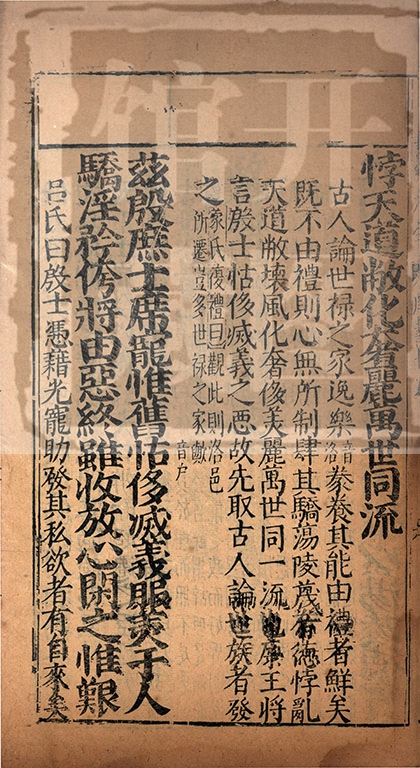 悖天道敝化奢麗萬世同流
古人論世禄之家逸樂音洛豢養其能由禮者鮮矣
既不由禮則心無所制肆其驕蕩陵蔑有德悖亂
天道敝壞風化奢侈美麗萬世同一流也康王將
言殷士怙侈滅義之惡故先取古人論世族者發
之家氏復禮曰觀此則洛邑
所遷豈多世禄之家歟
音戶
兹殷庶士席寵惟舊怙侈滅義服美于人
驕淫矜侉將由惡終雖收放心閑之惟艱
呂氏曰殷士憑藉光寵助發其私欲者有自來矣